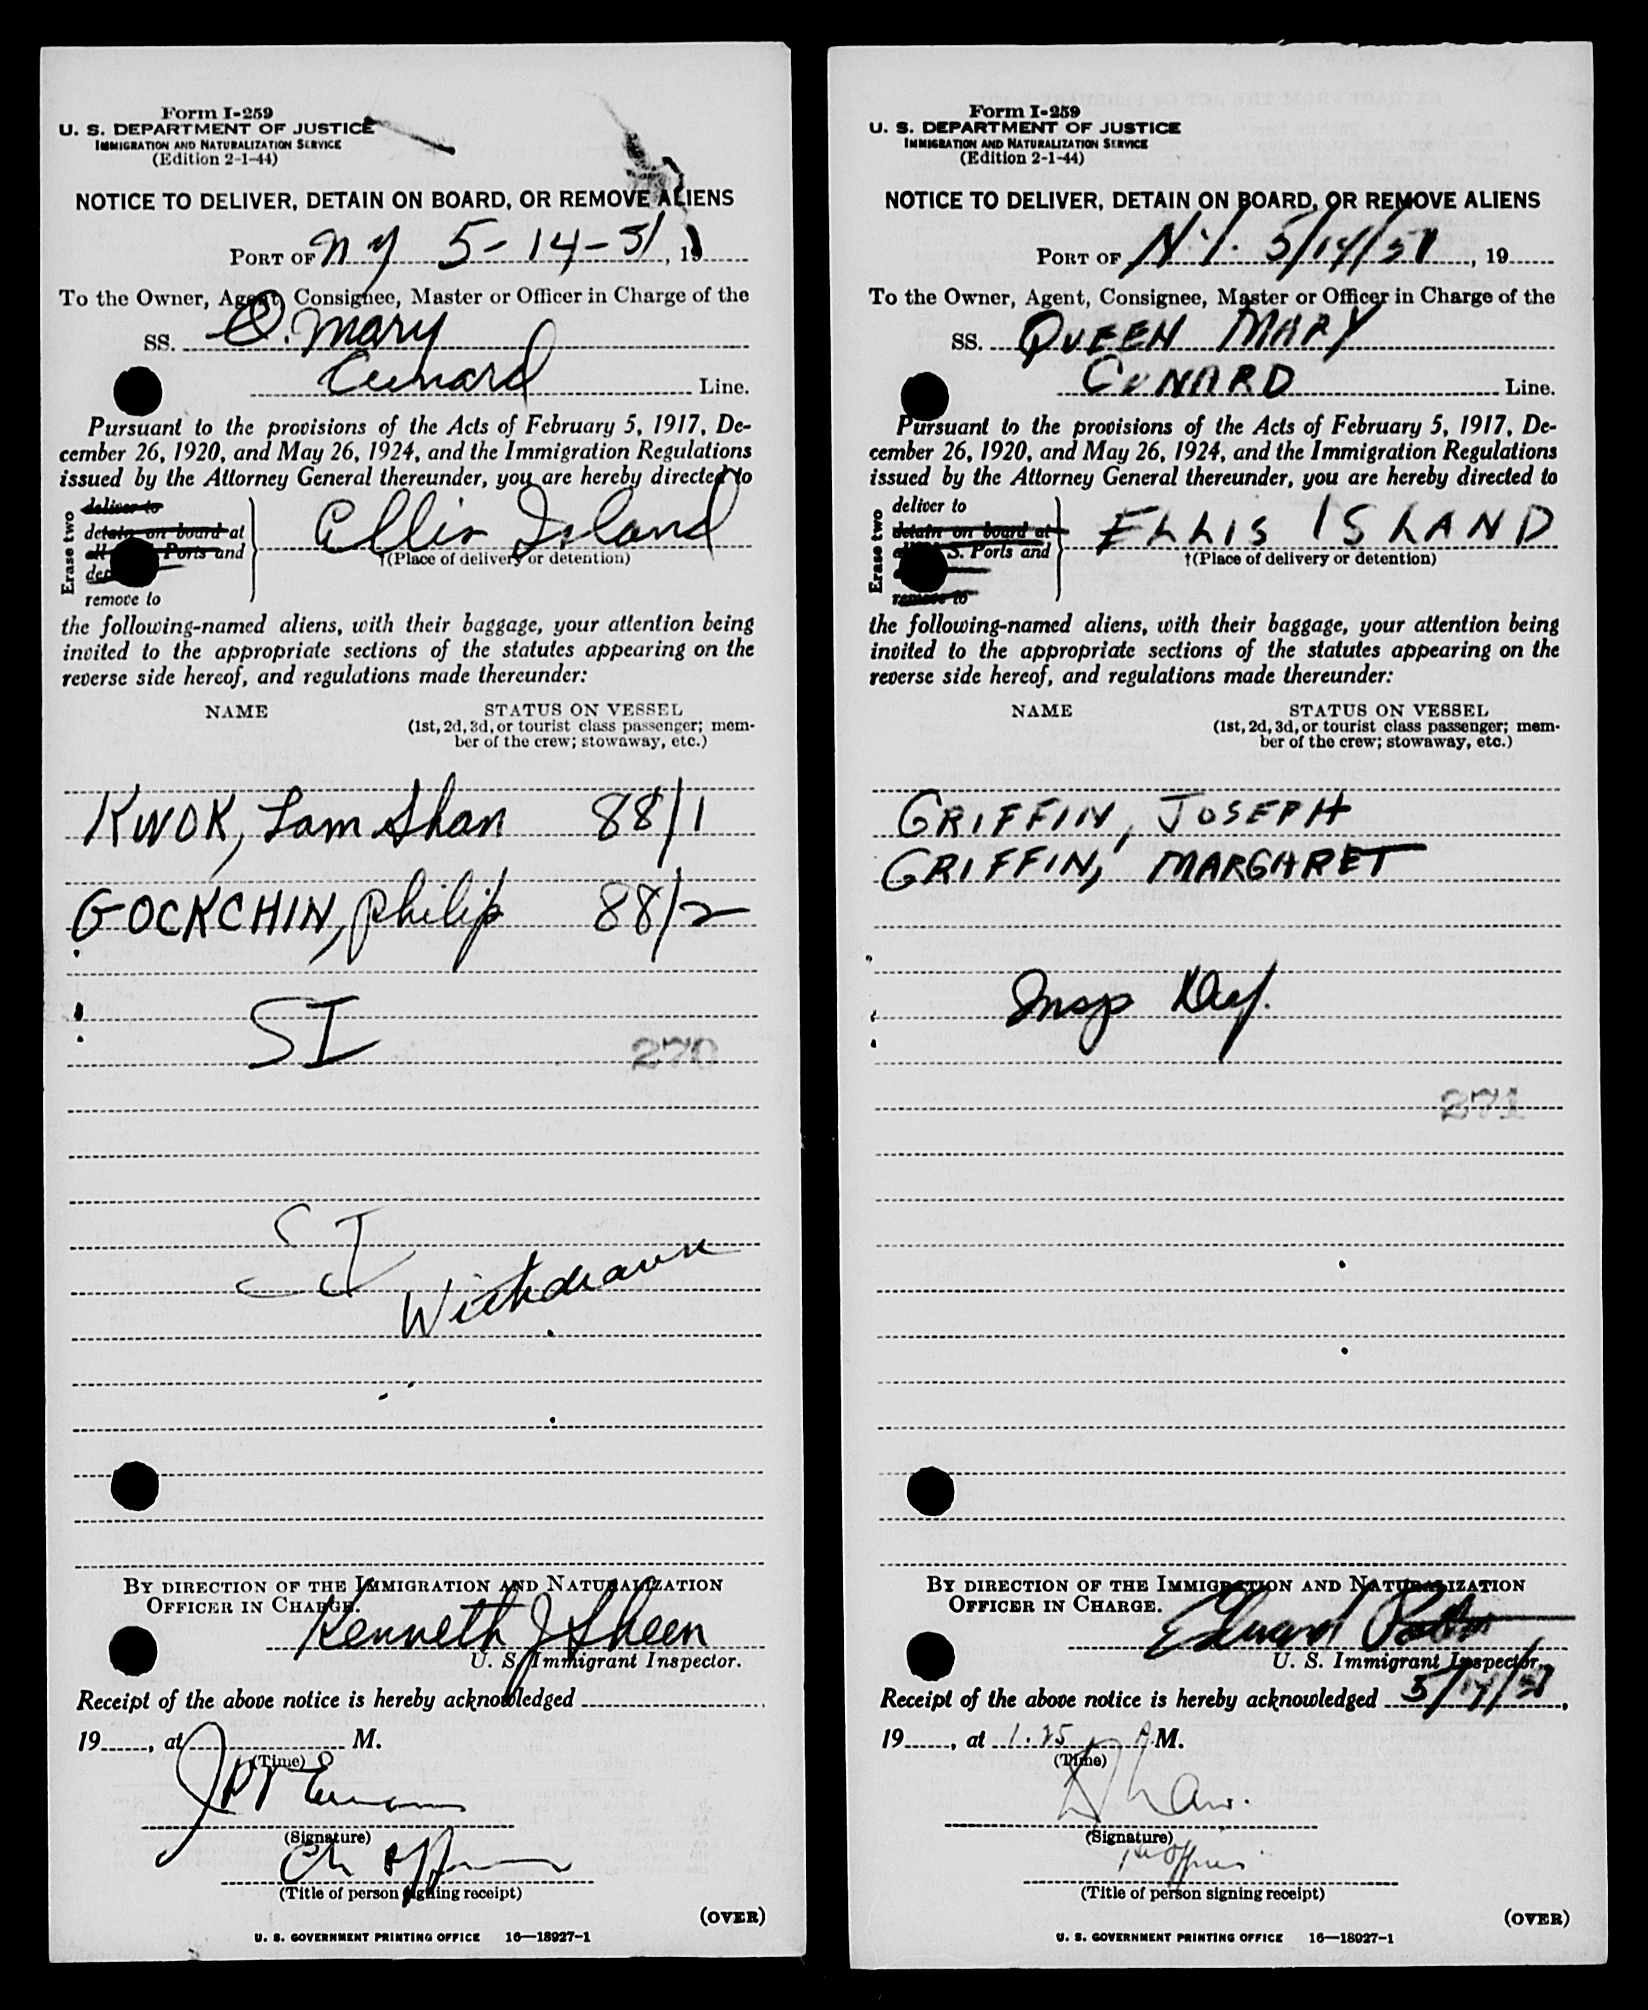 Form I-259
U. S. DEPARTMENT OF JUSTICE
IMMIGRATION AND NATURALIZATION SERVICE
(Edition 2-1-44)
NOTICE TO DELIVER, DETAIN ON BOARD, OR REMOVE ALIENS
PORT OF NY 5-14-51, 19
To the Owner, Agent, Consignee, Master or Officer in Charge of the
SS. Q. Mary
Cunard Line.
Pursuant to the provisions of the Acts of February 5, 1917, De-
cember 26, 1920, and May 26, 1924, and the Immigration Regulations
issued by the Attorney General thereunder, you are hereby directed to
Erase two
deliver to
detain on board at
all Ports and
remove to
Ellis Island
†(Place of delivery or detention)
the following-named aliens, with their baggage, your attention being
invited to the appropriate sections of the statutes appearing on the
reverse side hereof, and regulations made thereunder:
NAME STATUS ON VESSEL
(1st, 2d, 3d, or tourist class passenger; mem-
ber of the crew; stowaway, etc.)
KWOK, Lam Shan 88/1
GOCKCHIN, Philip 88/2
SI
270
SI
Withdrawn
BY DIRECTION OF THE IMMIGRATION AND NATURALIZATION
OFFICER IN CHARGE.
Kenneth J Sheen
U. S. Immigrant Inspector.
Receipt of the above notice is hereby acknowledged
19, at M.
(Time)
(Signature)
(Title of person signing receipt)
(OVER)
U. S. GOVERNMENT PRINTING OFFICE 16—18927-1
Form I-259
U. S. DEPARTMENT OF JUSTICE
IMMIGRATION AND NATURALIZATION SERVICE
(Edition 2-1-44)
NOTICE TO DELIVER, DETAIN ON BOARD, OR REMOVE ALIENS
PORT OF N.Y. 5/14/51, 19
To the Owner, Agent, Consignee, Master or Officer in Charge of the
SS. QUEEN MARY
CUNARD Line.
Pursuant to the provisions of the Acts of February 5, 1917, De-
cember 26, 1920, and May 26, 1924, and the Immigration Regulations
issued by the Attorney General thereunder, you are hereby directed to
Erase two
deliver to
detain on board at
S. Ports and
remove to
ELLIS ISLAND
†(Place of delivery or detention)
the following-named aliens, with their baggage, your attention being
invited to the appropriate sections of the statutes appearing on the
reverse side hereof, and regulations made thereunder:
NAME STATUS ON VESSEL
(1st, 2d, 3d, or tourist class passenger; mem-
ber of the crew; stowaway, etc.)
GRIFFIN, JOSEPH
GRIFFIN, MARGARET
Insp Def.
271
BY DIRECTION OF THE IMMIGRATION AND NATURALIZATION
OFFICER IN CHARGE.
Edward
U. S. Immigrant Inspector.
Receipt of the above notice is hereby acknowledged 5/14/51,
19, at 1.25 P.M.
(Time)
(Signature)
(Title of person signing receipt)
(OVER)
U. S. GOVERNMENT PRINTING OFFICE 16—18927-1